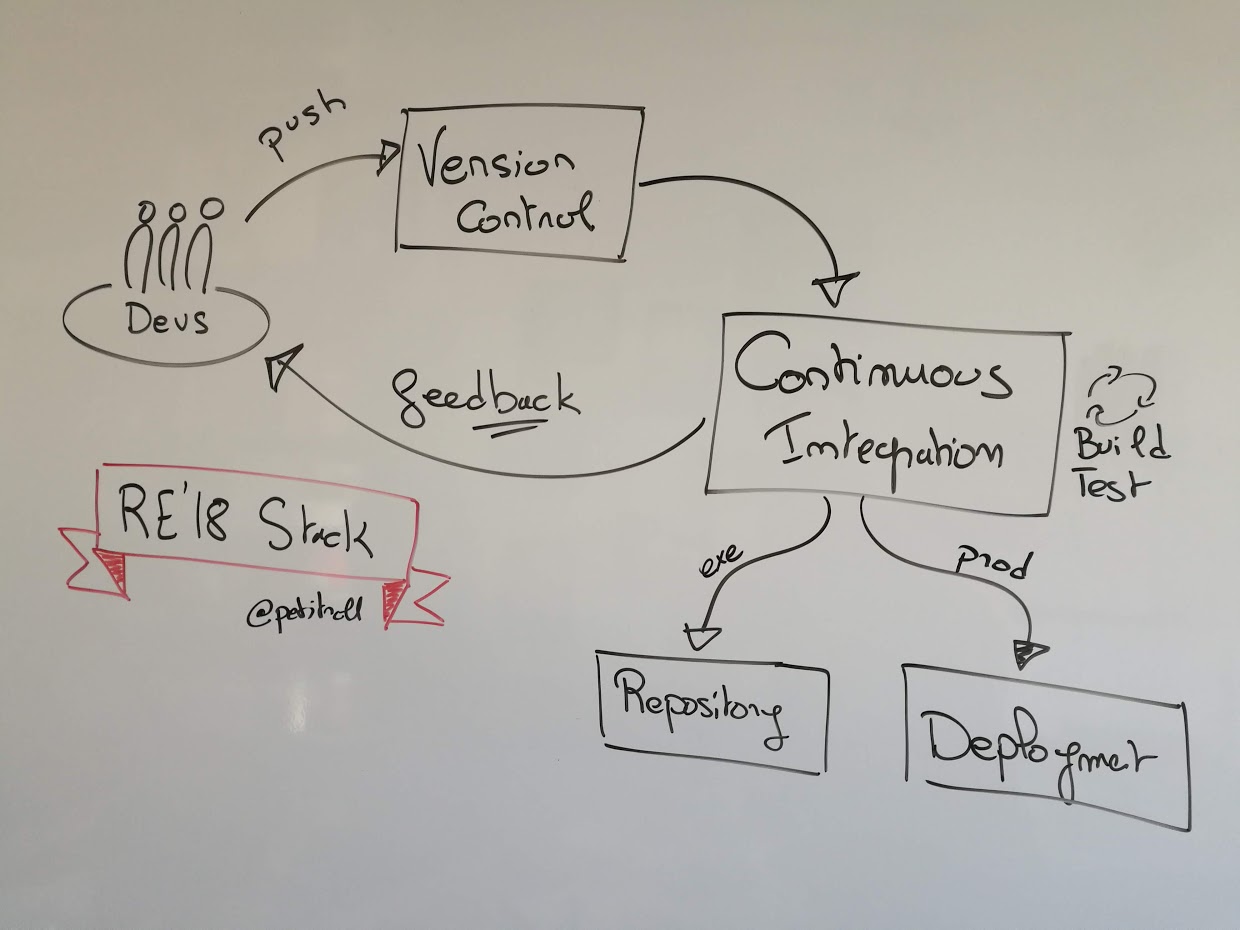 push
Version
Control
Devs
Continuous
Integration
feedback
Build
Test
RE'18 Stack
@petitroll
exe
prod
Repository
Deploymet